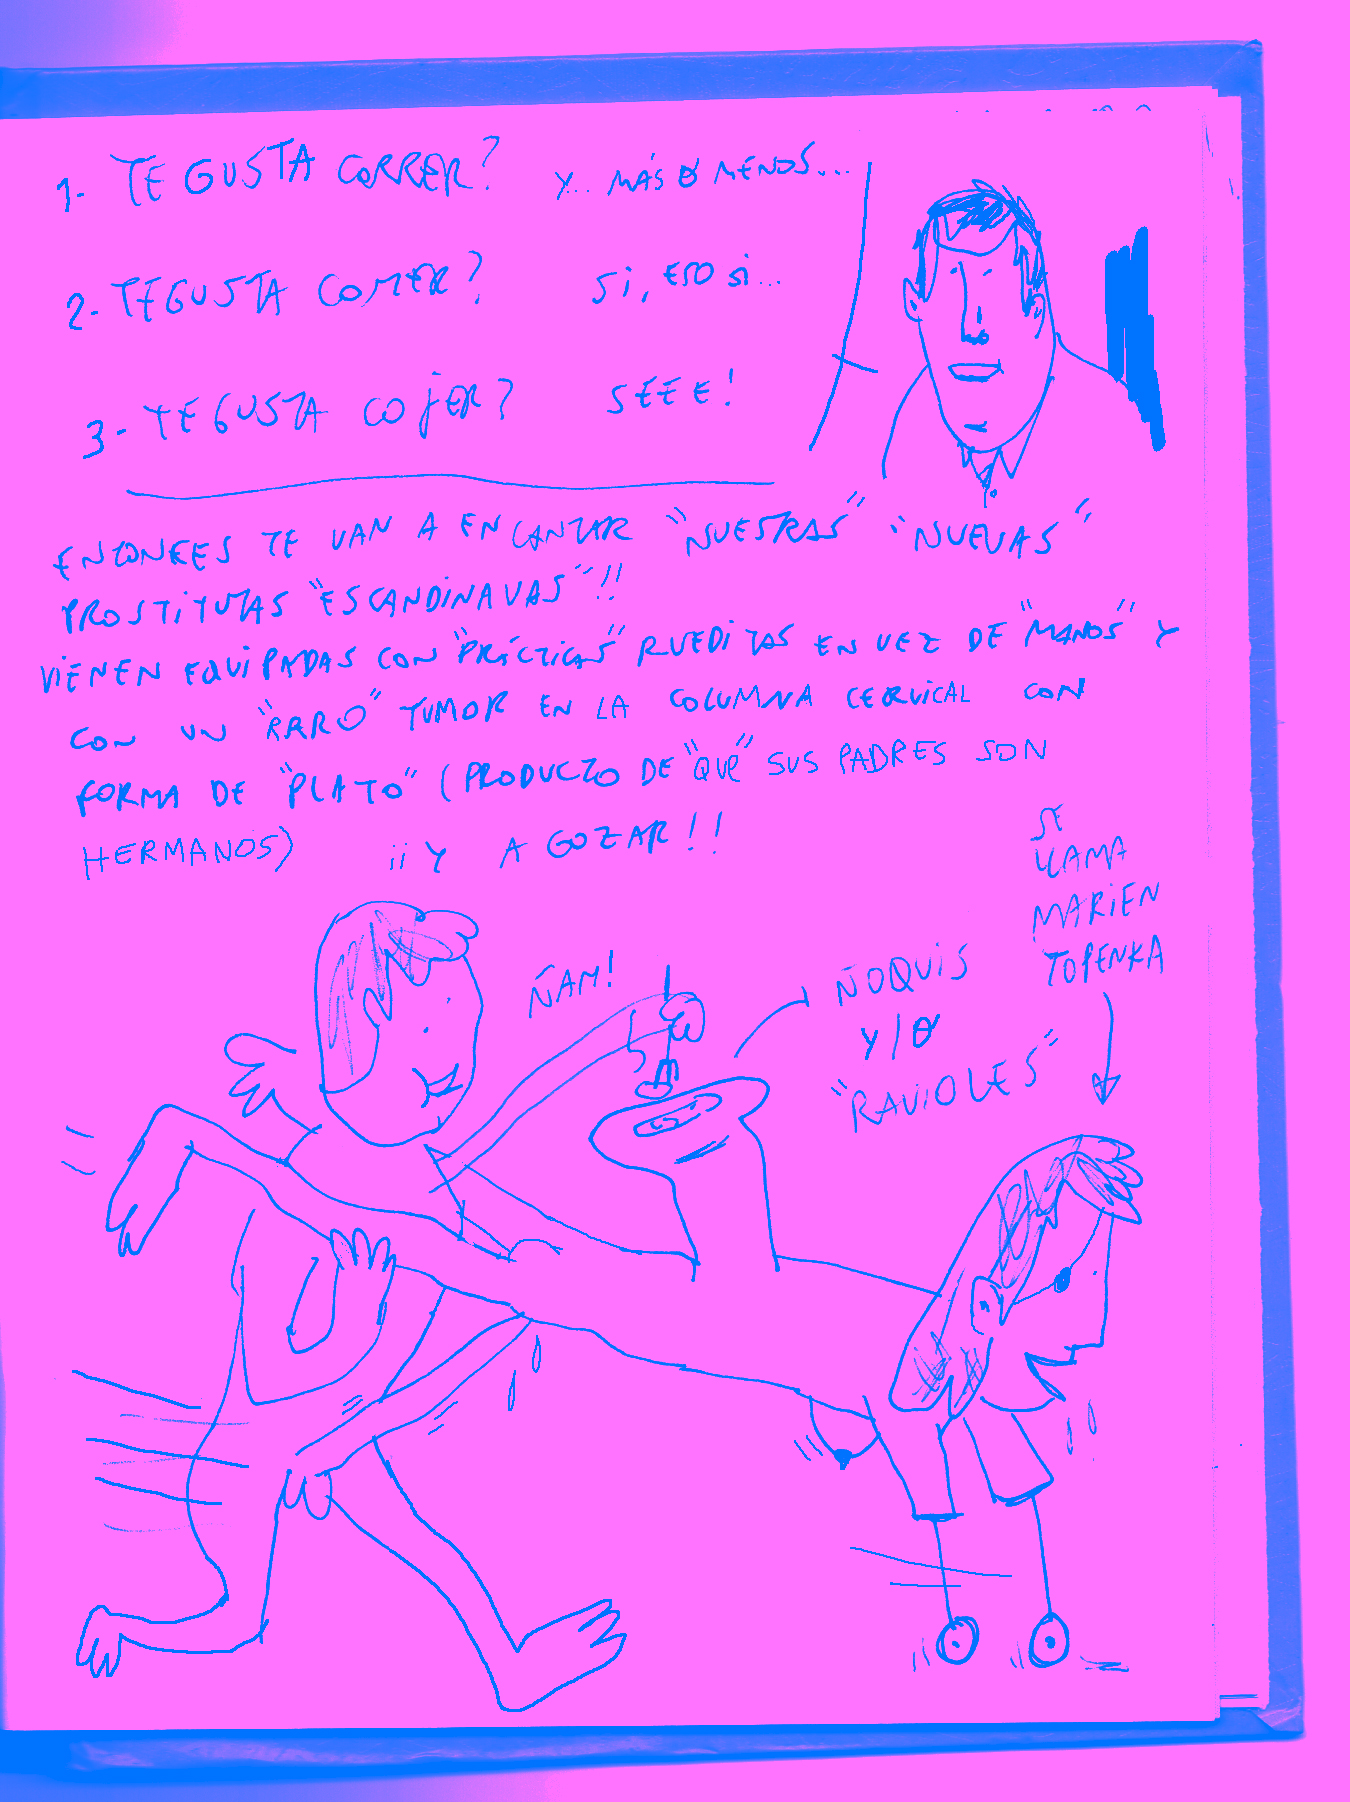 1- TE GUSTA CORRER? Y... MÁS O MENOS...
2- TE GUSTA COMER? SI, ESO SI...
3- TE GUSTA COJER? SEEE!
ENTONCES TE VAN A ENCANTAR "NUESTRAS" "NUEVAS"
PROSTITUTAS "ESCANDINAVAS"!!
VIENEN EQUIPADAS CON "PRÁCTICAS" RUEDITAS EN VEZ DE "MANOS" Y
CON UN "RARO" TUMOR EN LA COLUMNA CERVICAL CON
FORMA DE "PLATO" (PRODUCTO DE "QUE" SUS PADRES SON
HERMANOS) ¡¡Y A GOZAR!!
SE
LLAMA
MARIEN
TOPENKA
ÑAM!
ÑOQUIS
Y/O
"RAVIOLES"